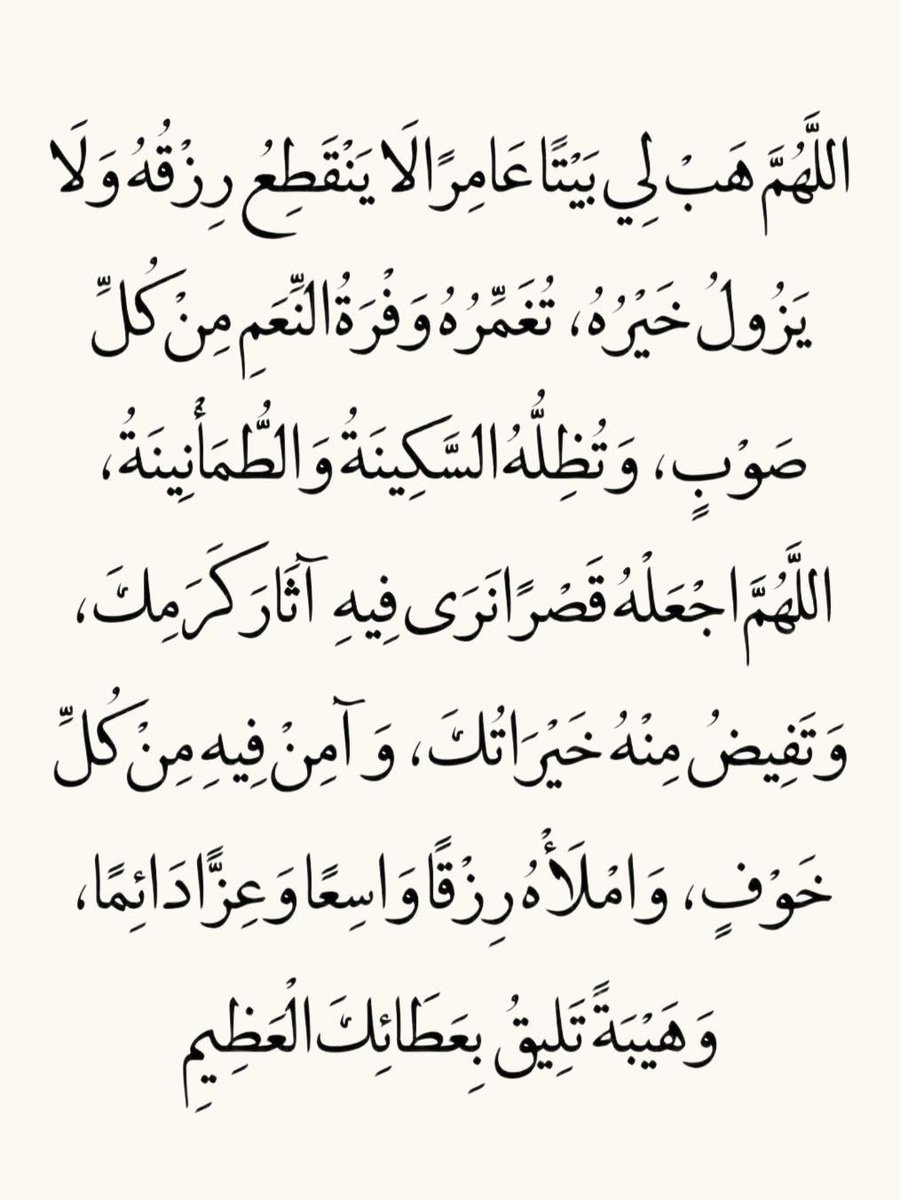 اللَّهُمَّ هَبْ لِي بَيْتًا عَامِرًا لَا يَنْقَطِعُ رِزْقُهُ وَلَا
يَزُولُ خَيْرُهُ، تُغَمِّرُهُ وَفْرَةُ النِّعَمِ مِنْ كُلِّ
صَوْبٍ، وَتُظِلُّهُ السَّكِينَةُ وَالطُّمَأْنِينَةُ،
اللَّهُمَّ اجْعَلْهُ قَصْرًا نَرَى فِيهِ آثَارَ كَرَمِكَ،
وَتَفِيضُ مِنْهُ خَيْرَاتُكَ، وَآمِنْ فِيهِ مِنْ كُلِّ
خَوْفٍ، وَامْلَأْهُ رِزْقًا وَاسِعًا وَعِزًّا دَائِمًا،
وَهَيْبَةً تَلِيقُ بِعَطَائِكَ الْعَظِيمِ